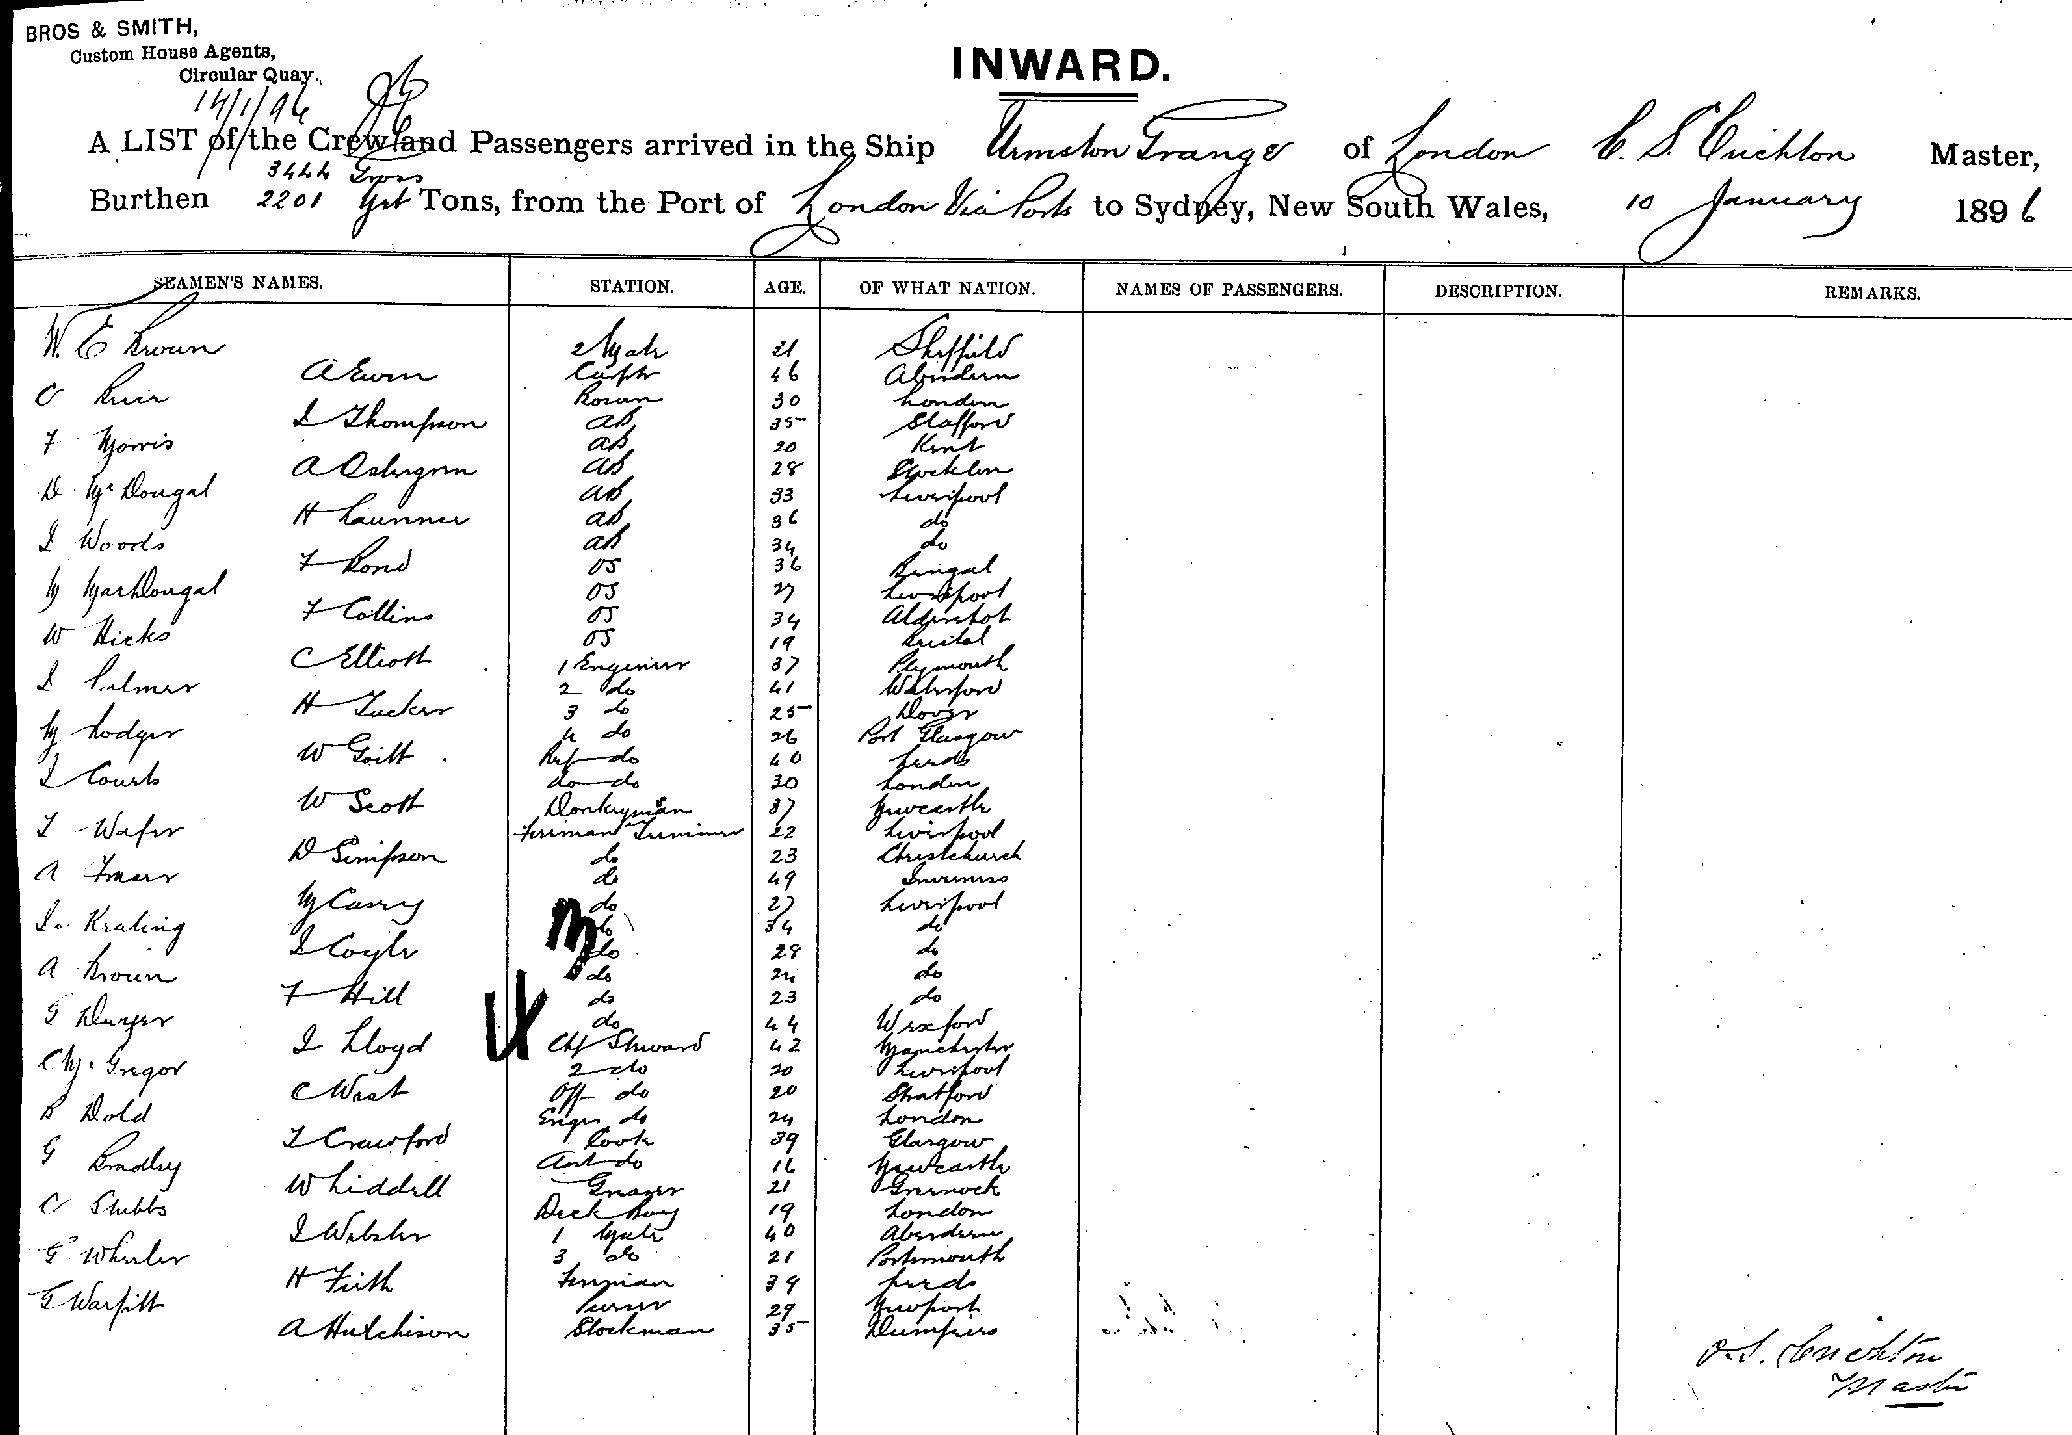 BROS & SMITH,
Custom House Agents,
Circular Quay.
14/1/96
INWARD.
A LIST of the Crew and Passengers arrived in the Ship Urmston Grange of London C. S. Crichton Master,
3444 Gross
Burthen 2201 Net Tons, from the Port of London Via Ports to Sydney, New South Wales, 10 January 1896
SEAMEN'S NAMES. STATION. AGE. OF WHAT NATION. NAMES OF PASSENGERS. DESCRIPTION. REMARKS.
W. E Brown 2 Mate 21 Sheffield
A Ewen Carptr 46 Aberdeen
C Bosun 30 London
J Thompson AB 35 Stafford
F Morris AB 20 Kent
A AB 28 Stockton
D McDougal AB 33 Liverpool
H AB 36 do
J Woods AB 34 do
F Bond OS 36 Bengal
M MacDougal OS 27 Liverpool
F Collins OS 34 Aldershot
W Hicks OS 19 Bristol
C Elliott 1 Engineer 37 Plymouth
J Palmer 2 do 41 Waterford
H Tucker 3 do 25 Dover
M Lodger 4 do 26 Port Glasgow
W Ref do 40 Leeds
J Courts do do 30 London
W Scott Donkeyman 37 Newcastle
T Wafer Fireman Trimmer 22 Liverpool
D Simpson do 23 Christchurch
A Fraser do 49 Inverness
M Carey do 27 Liverpool
Jn Keating do 34 do
J Coyle do 28 do
A Brown do 24 do
F Hill do 23 do
G Dwyer do 44 Wexford
J Lloyd Chf Steward 42 Manchester
C McGregor 2 do 20 Liverpool
C West Off do 20 Stratford
R Dold Engrs do 24 London
J Crawford Cook 39 Glasgow
G Bradley Asst do 16 Newcastle
W Liddell Greaser 21 Greenock
C Stubbs Deck Boy 19 London
J Webster 1 Mate 40 Aberdeen
G Wheeler 3 do 21 Portsmouth
H Firth Fireman 39 Leeds
G Warfitt Purser 29 Newport
A Hutchison Stockman 35 Dumfries
C. S. Crichton
Master